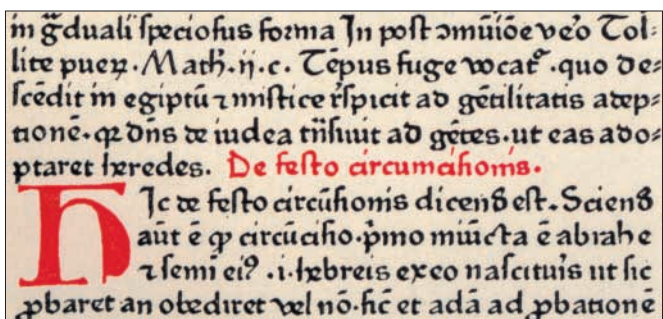 in g̃duali ſpecioſus forma In poſt ↄmũiõe ve᷒o Tol⸗
lite pueꝝ · Matħ · ij · c · Tẽpus fuge vocat᷒ · quo de⸗
ſcẽdit in egiptũ ⁊ miſtice r̃ſpicit ad gẽtilitatis adep⸗
tionẽ · qꝛ dñs de iudea tñſiuit ad gẽtes · ut eas ado⸗
ptaret heredes. De feſto circumciſionis ·
HIc de feſto circũſionis dicend̃ eſt . Sciend̃
aũt ẽ ꝙ circũciſio · p̃mo miũcta ẽ abrahe
⁊ ſemĩ eiꝰ · i · hebreis ex eo naſcitu᷒is ut ſic
ꝓbaret an obediret vel nõ · ſic̃ et adã ad ꝓbationẽ